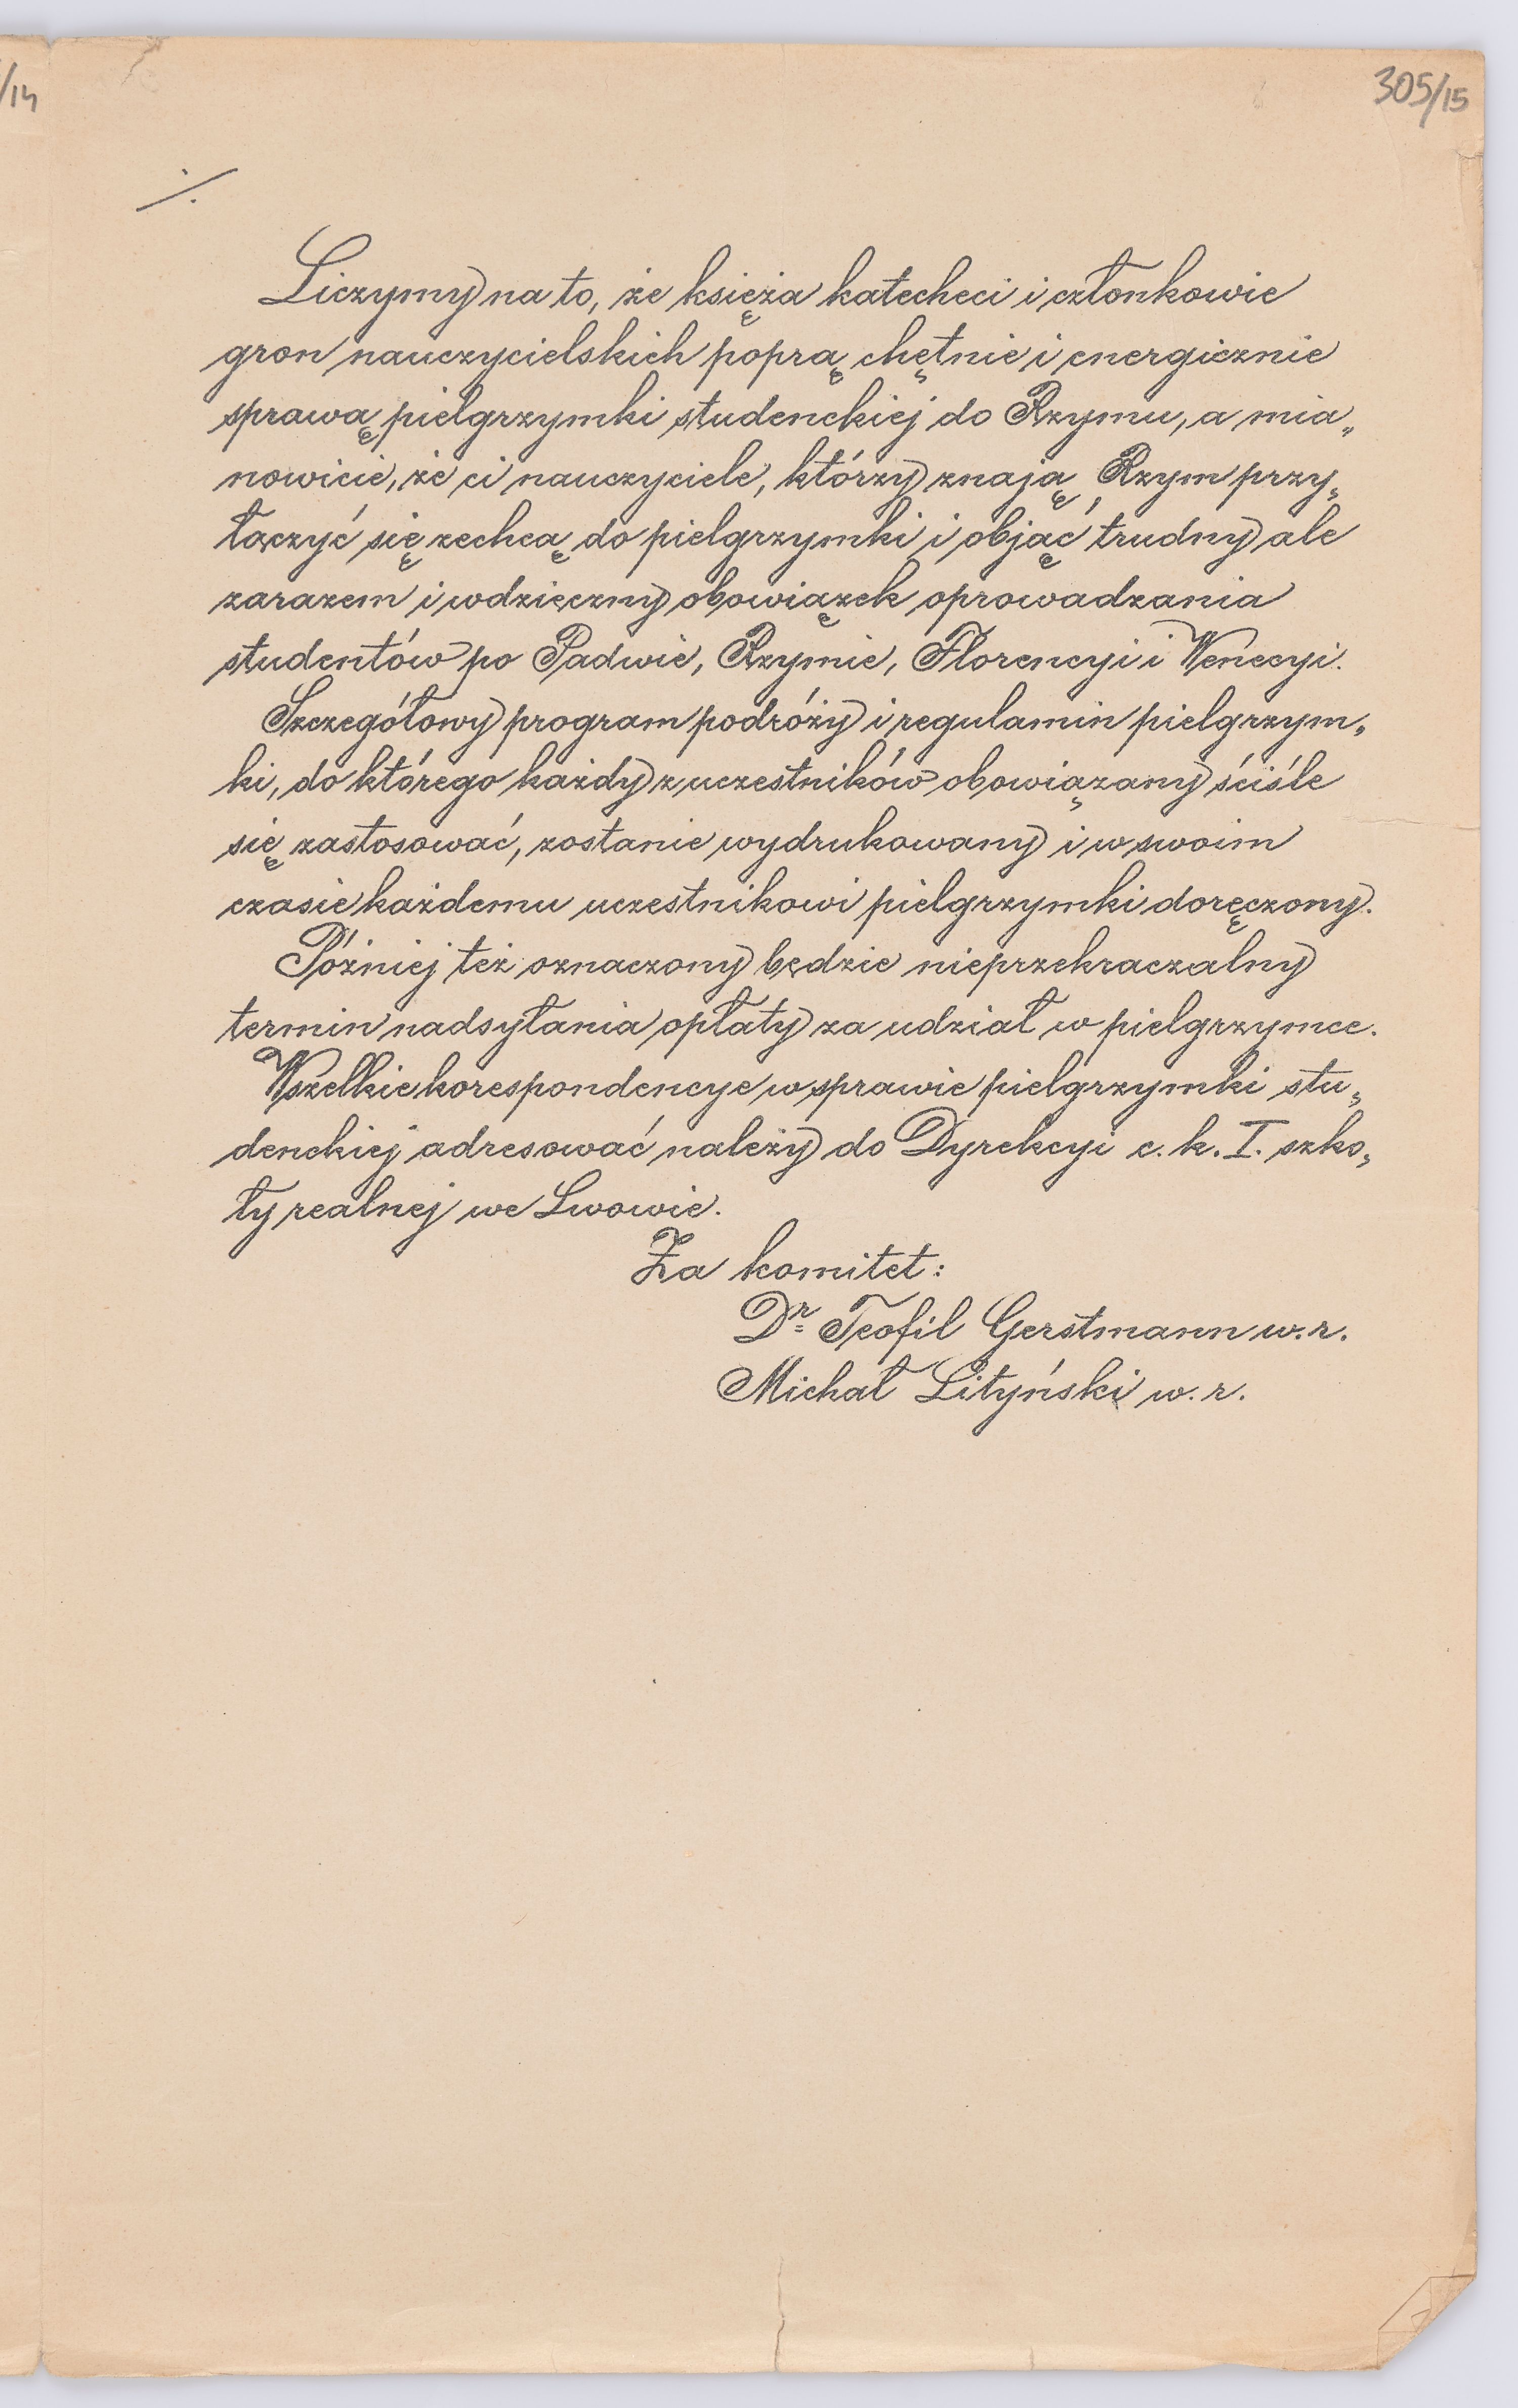 /14
305/15
·/.
Liczymy na to, że księża katecheci i członkowie
gron nauczycielskich poprą chętnie i energicznie
sprawą pielgrzymki studenckiej do Rzymu, a mia„
nowicie, że ci nauczyciele, którzy znają Rzym przy„
łączyć się zechcą do pielgrzymki i objąć trudny ale
zarazem i wdzięczny obowiązek oprowadzania
studentów po Padwie, Rzymie, Florencyi i Wenecyi.
Szczegółowy program podróży i regulamin pielgrzym„
ki, do którego każdy z uczestników obowiązany ściśle
się zastosować, zostanie wydrukowany i w swoim
czasie każdemu uczestnikowi pielgrzymki doręczony.
Później też oznaczony będzie nieprzekraczalny
termin nadsyłania opłaty za udział w pielgrzymce.
Wszelkie korespondencye w sprawie pielgrzymki stu„
denckiej adresować należy do Dyrekcyi c. k. I. szko„
ły realnej we Lwowie.
Za komitet:
Dr Teofil Gerstmann w. r.
Michał Lityński w. r.